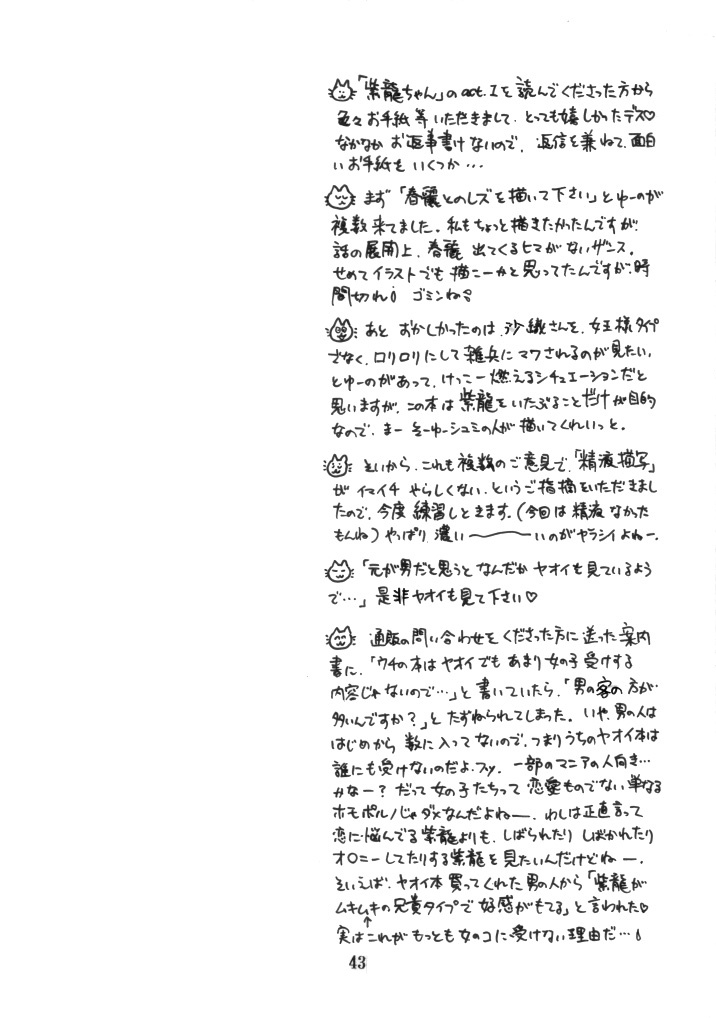 「紫龍ちゃん」のact.Iを読んでくださった方から
色々お手紙等いただきまして、とっても嬉しかったデス♡
なかなかお返事書けないので、返信を兼ねて、面白
いお手紙をいくつか…
まず「春麗とのレズを描いて下さい」とゆーのが
複数来てました。私もちょっと描きたかったんですが、
話の展開上、春麗出てくるヒマがないザンス。
せめてイラストでも描こーかと思ってたんですが、時
間切れ! ゴミンね
あとおかしかったのは、沙織さんを、女王様タイプ
でなく、ロリロリにして雑兵にマワされるのが見たい、
とゆーのがあって、けっこー燃えるシチュエーションだと
思いますが、この本は紫龍をいたぶることだけが目的
なので、まーそーゆーシュミの人が描いてくれいっと。
そいから、これも複数のご意見で、「精液描写」
がイマイチやらしくない、というご指摘をいただきまし
たので、今度練習しときます。(今回は精液なかった
もんね)やっぱり濃い〜〜いのがヤラシイよねー。
「元が男だと思うとなんだかヤオイも見ているよう
で…」是非ヤオイも見て下さい♡
通販の問い合わせをくださった方に送った案内
書に、「ウチの本はヤオイでもあまり女の子受けする
内容じゃないので…」と書いていたら、「男の客の方が
多いんですか?」とたずねられてしまった。いや、男の人は
はじめから数に入ってないので、つまりうちのヤオイ本は
誰にも受けないのだよ、フッ。一部のマニアの人向き…
かなー?だって女の子たちって恋愛ものでない単なる
ホモポルノじゃダメなんだよねー。わしは正直言って
恋に悩んでる紫龍よりも、しばられたりしばかれたり
オ○ニーしてたりする紫龍を見たいんだけどねー。
そいえば、ヤオイ本買ってくれた男の人から「紫龍が
ムキムキの兄貴タイプで好感がもてる」と言われた♡
↑
実はこれがもっとも女のコに受けない理由だ…!
43